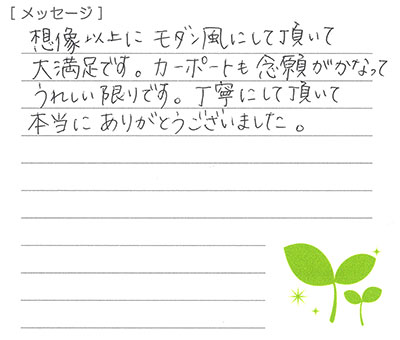 [メッセージ]
想像以上に モダン風にして頂いて
大満足です。カーポートも念願がかなって
うれしい限りです。丁寧にして頂いて
本当に ありがとうございました。